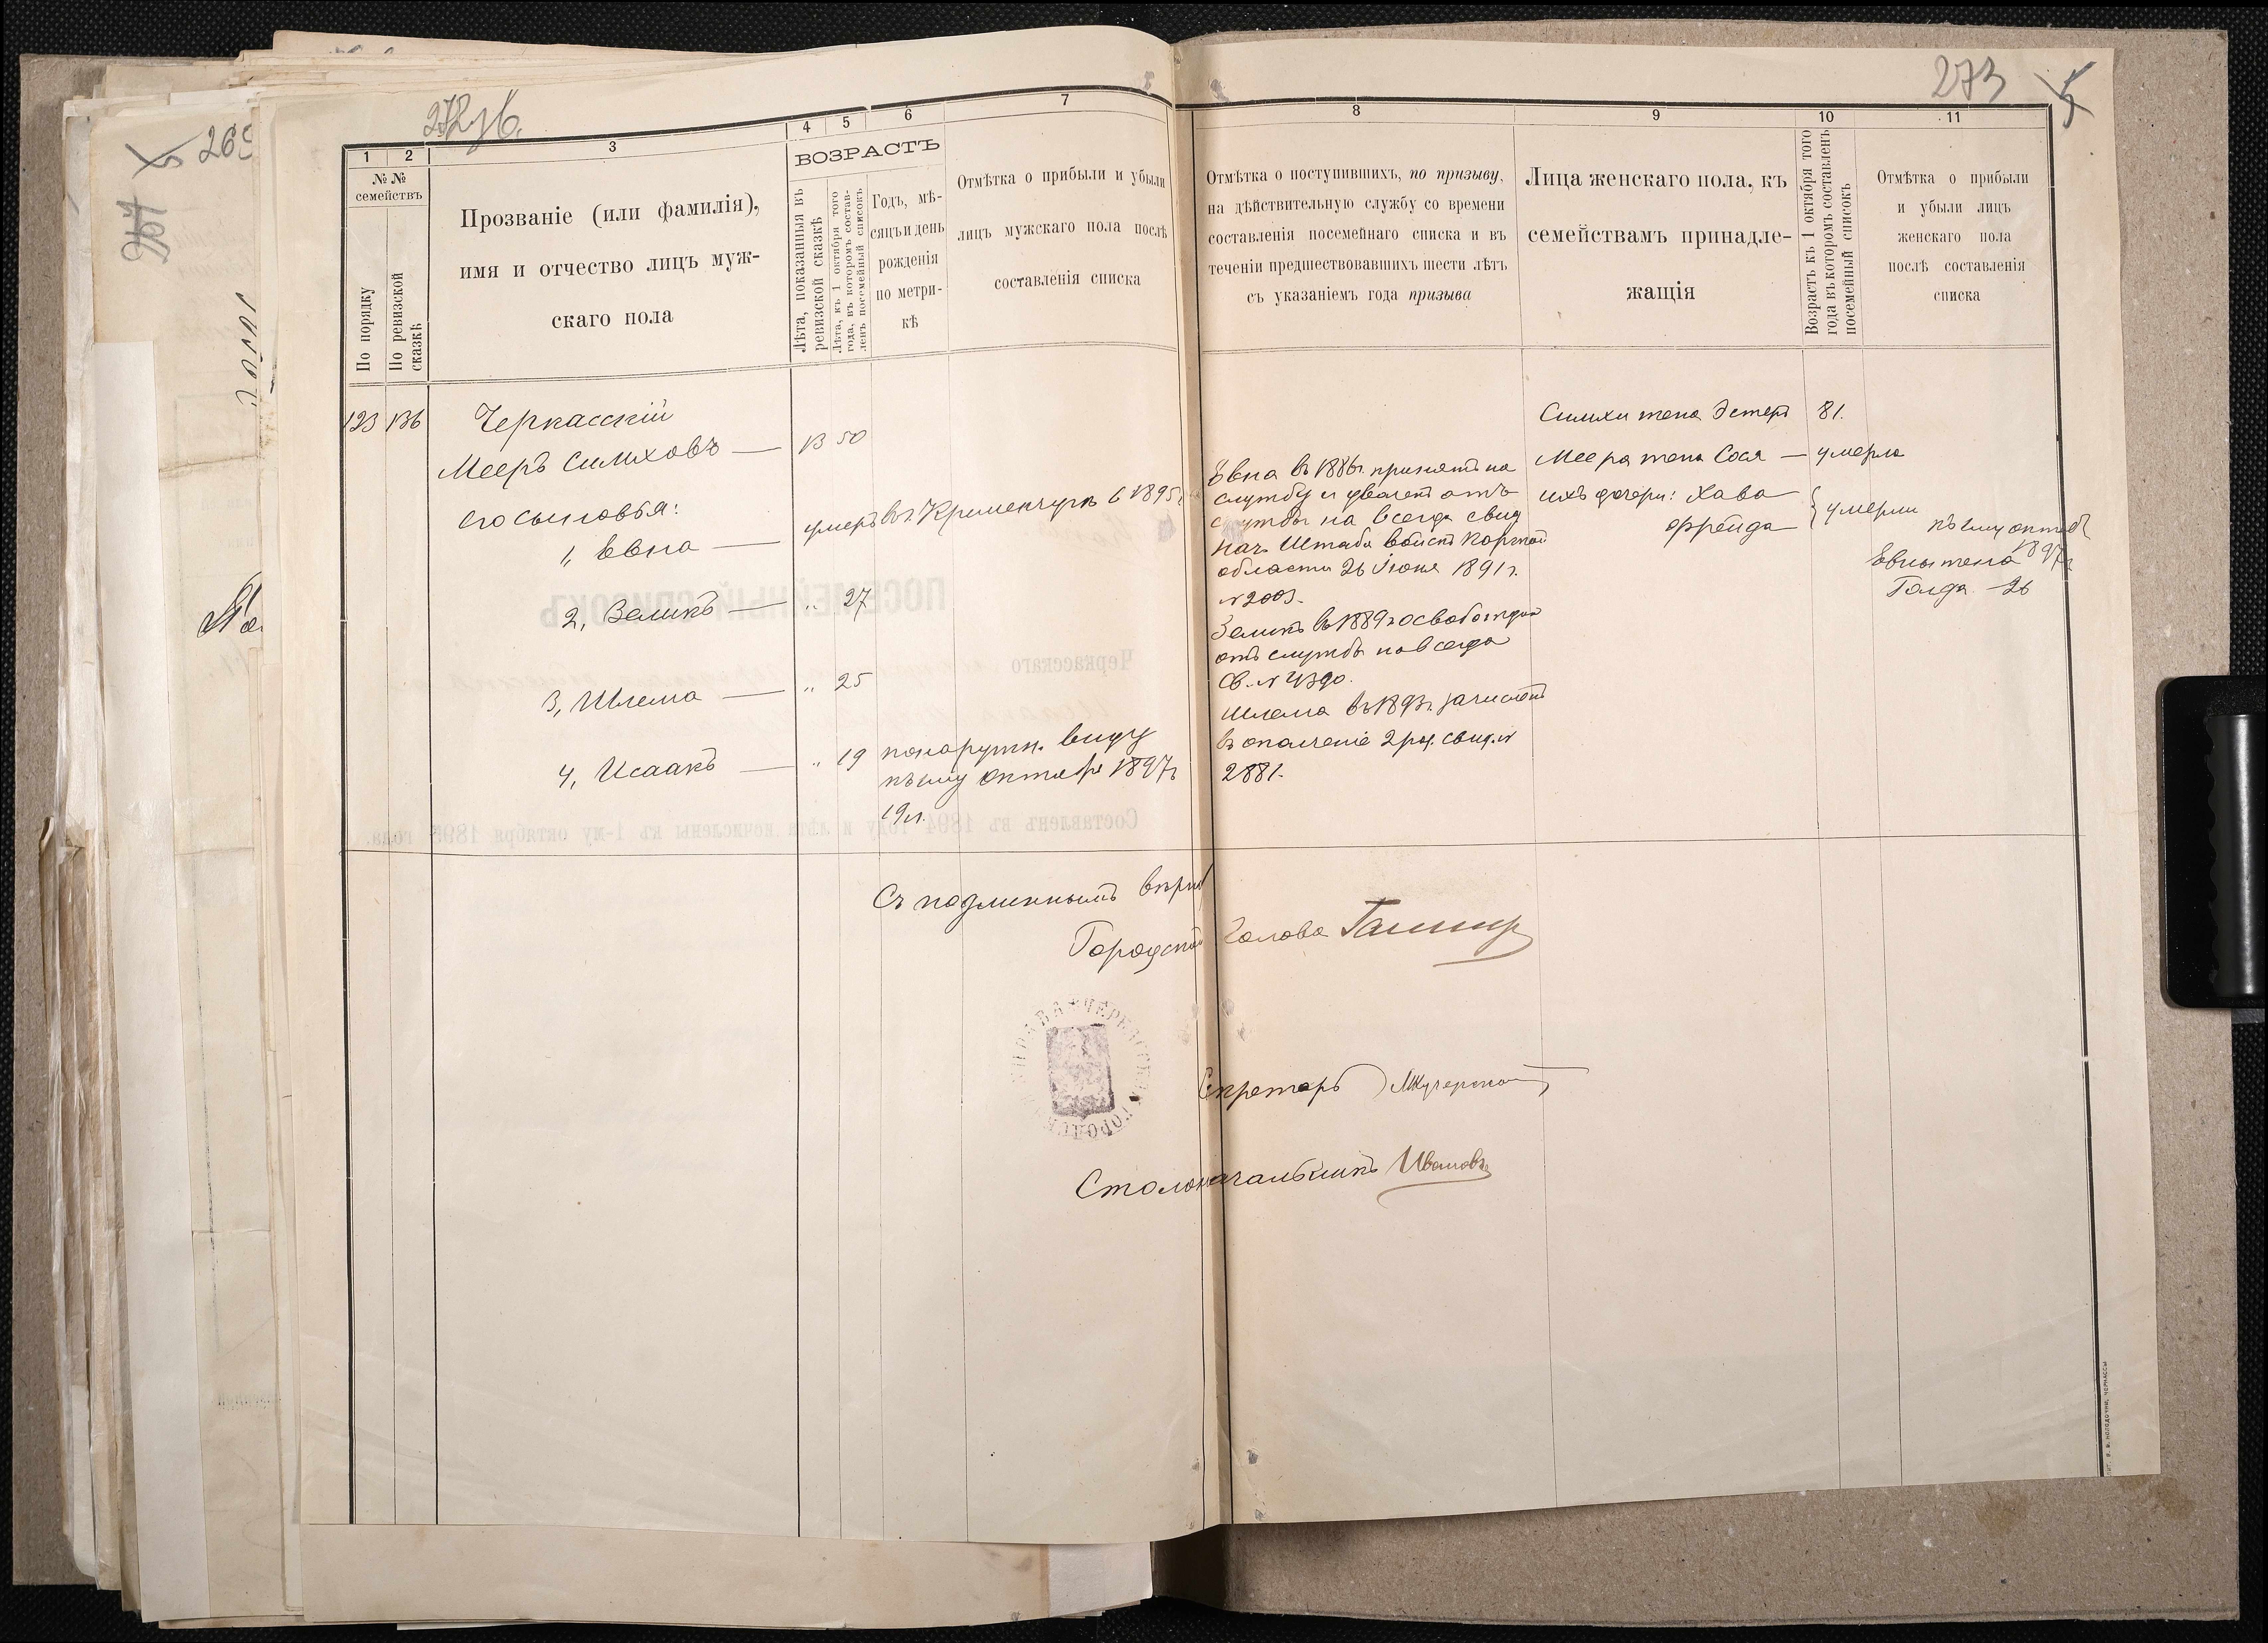 272 об.
273
269
264
1
2
3
4
5
6
7
8
9
10
11
№ №
семействъ
По порядку
По ревизской
сказкѣ
Прозваніе (или фамилія),
имя и отчество лицъ муж-
скаго пола
ВОЗРАСТЪ
Лѣта, показанныя въ
ревизской сказкѣ
Лѣта, къ 1 октября того
года, въ которомъ состав-
ленъ посемейный списокъ
Годъ, мѣ-
сяцъ и день
рожденія
по метри-
кѣ
Отмѣтка о прибыли и убыли
лицъ мужскаго пола послѣ
составленія списка
Отмѣтка о поступившихъ, по призыву,
на дѣйствительную службу со времени
составленія посемейнаго списка и въ
теченіи предшествовавшихъ шести лѣтъ
съ указаніемъ года призыва
Лица женскаго пола, къ
семействамъ принадле-
жащія
Возрастъ къ 1 октября того
года въ которомъ составленъ
посемейный списокъ
Отмѣтка о прибыли
и убыли лицъ
женскаго пола
послѣ составленія
списка
123 136
Черкасскій
Мееръ Симховъ — 13 50
его сыновья:
1, Евна — умеръ въ г. Кременчугѣ 6 1895 г.
2, Зеликъ — „ 27
3, Шлема — „ 25
4, Исаакъ — „ 19
по наружн. виду
къ 1му октября 1897 г.
19 л.
Евна въ 1886 г. принятъ на
службу и уволенъ отъ
службы на всегда свид
Нач. Штаба войскъ Карской
области 26 Іюня 1891 г.
№ 2003.
Зеликъ въ 1889 г. освобожденъ
отъ службы навсегда
св. № 4390.
Шлема въ 1893 г. зачисленъ
въ ополченіе 2 раз. свид. №
2881.
Симхи жена Эстеръ 81.
Меера жена Сося — умерла
ихъ дочери: Хава
Фрейда — } умерли
къ 1му октяб
1897 г.
Евны жена
Голда — 26
Съ подлиннымъ вѣрно
Городской Голова
Секретарь
Столоначальникъ Ивановъ
ПОСЕМЕЙНЫЙ СПИСОКЪ
Черкасскаго
Составленъ въ 1894 году и лѣта исчислены къ 1-му октября 1895 года.